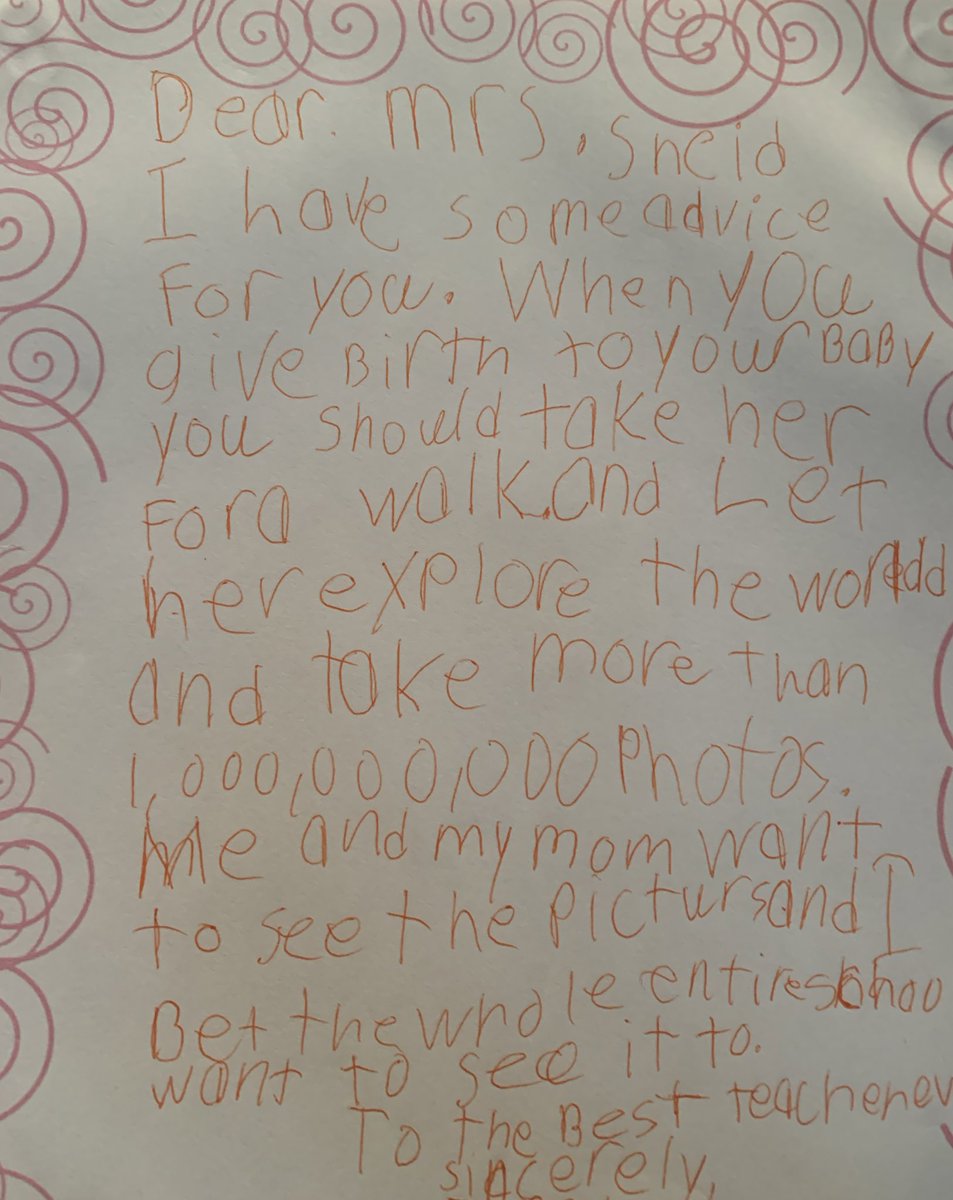 Dear. Mrs. Sneid
I have some advice
For you. When you
give Birth to your BaBy
you should take her
For a walk.and Let
her explore the worldd
and take more than
1,000,000,000 Photos.
Me and my mom want
to see the Pictursand I
Bet the whole entire
want to see it to.
To the Best
sincerely,